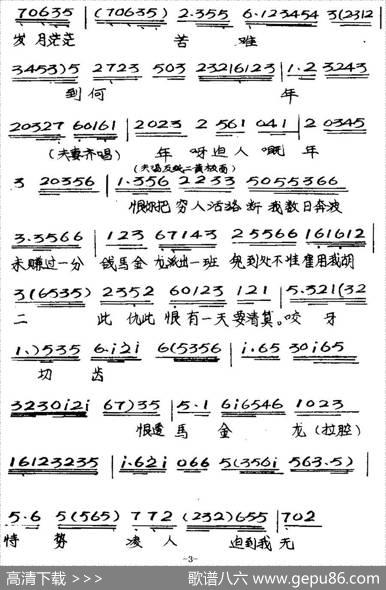 70635 | (70635) 2.355 6.123454 3(2312
岁月茫茫 苦 难
3453)5 2723 503 23216123 | 1.2 3243
到何 年
20327 60161 | 2023 2 561 041 | 2 0345
(夫妻齐唱) 年 呀迫人 嘅 年
(夫唱反线二黄板面)
3 20356 | 1.356 2233 5055366
恨你把 穷人活路 断 我数日奔波
3.3566 | 123 67143 25566 161612
未赚过一分 钱马金 龙派出一班 兔到处不准雇用我胡
3(6535) 2352 60123 121 | 5.321(32
二 此 仇此 恨 有一天 要清算。咬 牙
1.)535 6.i2i 6(5356 | i.65 30i65
切 齿
32302i2i 67)35 | 5.1 6i6546 1023
恨透 马 金 龙(拉腔)
16123235 | i.62i 066 5(356i 563.5) |
5.6 5(565) 772 (232)655 | 702
恃 势 凌 人 迫到我 无
-3-
高清下载 >>> 歌谱八六 www.gepu86.com